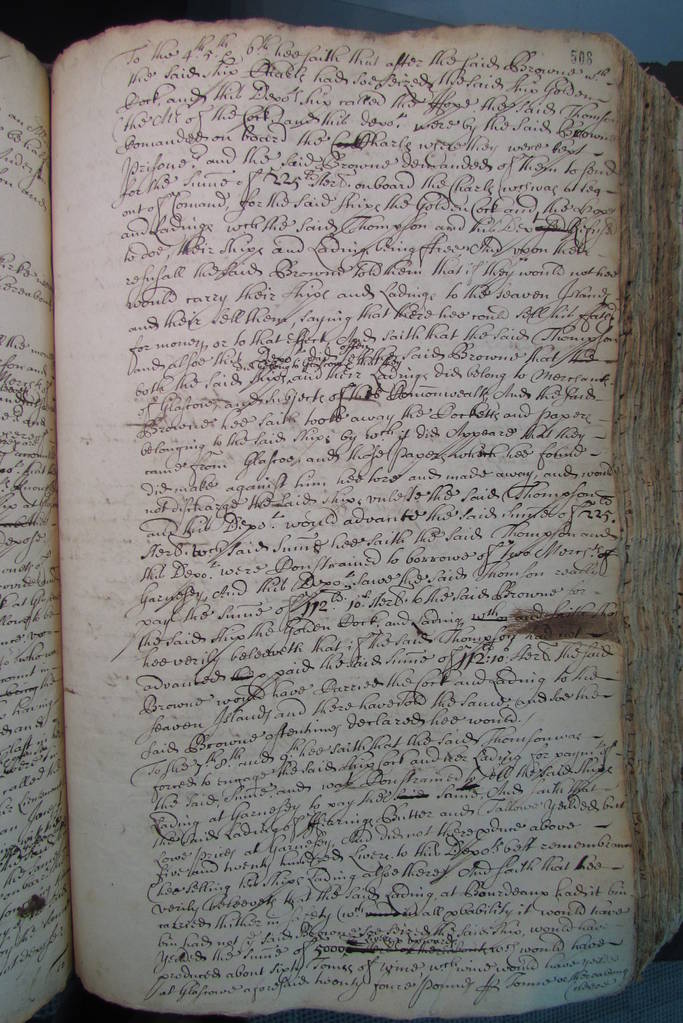 508
To the 4th 5th & 6th hee saith that after the said Browne wth
the said ship Charles had soe seized the said ship Golden
Cock and this Depots ship called the Hope the said Thomson
(the Mr of the Cock) and this depot were by the said Browne
Comanded on board the Charles where they were kept
Prisonrs and the said Browne demanded of them to send
for the summe of 225li sterl onboard the Charles wch was
out of Comand for the said ships the Golden Cock and the Hope
and Ladings wch the said Thompson and this Depot refused
to doe, their ships and Lading being free, And upon their
refusall the said Browne told them that if they would not hee
would carry their ships and Ladings to the seaven Islands
and their sell them, saying that there hee could sell his
for money, or to that effect, And saith that the said Thompson
and alsoe this Depot did often the said Browne that
both the said ships and their Ladings did belong to Merchants
of Glascow, and subjects of this Commonwealth, And the said
Browne hee saith tooke away the Cocketts and papers
belonging to the said ships by wch it did Appeare that they
came from Glascoe, and those papers which hee found
did make against him hee tore and made away, and would
not discharge the said ships unlesse the said Thompson
and this Depot would advance the said summe of 225li
sterl: wch said summe hee saith the said Thompson and
this Depot were Constrained to borrowe of two Merchts of
Garnesey, And this Depot sawe the said Thomson really
pay the summe of 112li 10s sterl to the said Browne for
the said ship the Golden Cock, and Lading and saith tho
hee verily beleeveth that if the said Thompson had not
advanced paid the said summe of 112li:10s sterl the said
Browne would have Carried the Cock and Lading to the
seaven Islands and there have sold the same, and soe the
said Browne oftentimes declared hee would /
To the 7th 8th and 9th hee saith that the said Thomson was
forced to engage the said ship Cock and her Lading for paymt of
the said summe and was Constrained to sell the said ships
Lading at Garnesey to pay the said same And saith that
the said Ladings of Herrings Butter and Tallowe yeilded but
Lowe prices at Garnesey, And did not there produce above
five and twenty hundred Livers to this Depots best remembrance
(hee selling his ships Lading alsoe there) And saith that hee
verily beleeveth that the said Lading at Bourdeaux had it bin
carried thither in safety (wch in all probability it would have
bin had not ye said Browne soe seized the said ship, would have
yeilded the summe of 5000 wch would have
produced about sixty Tonnes of wine wch wine would have yeilded
at Glascowe aforesaid twenty foure pounds per Tonne or thereabouts